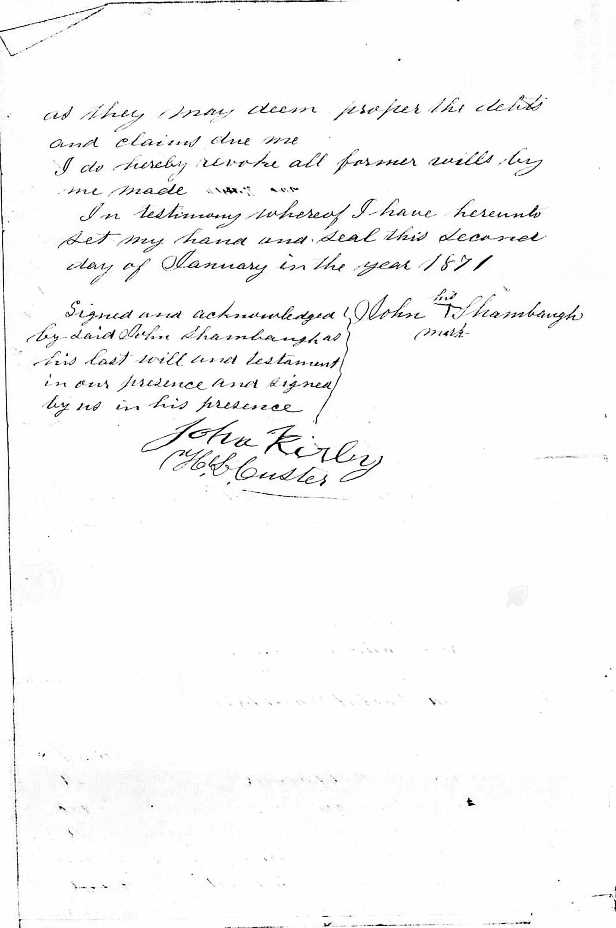 as they may deem proper the debts
and claims due me
I do hereby revoke all former wills by
me made
In testimony whereof I have hereunto
set my hand and seal this second
day of January in the year 1871
Signed and acknowledged
by said John Shambaugh as
his last will and testament
in our presence and signed
by us in his presence
his
John + Shambaugh
mark
John Kirby
H. L. Custer